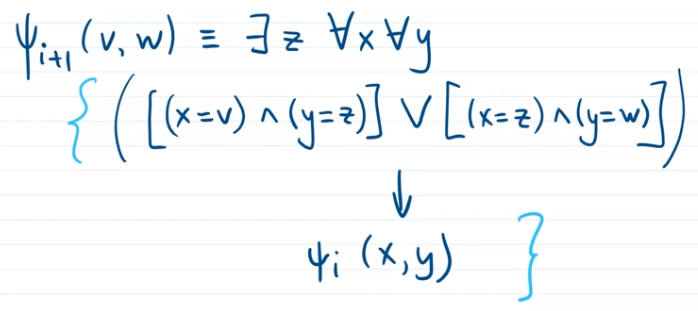 ψᵢ₊₁ (v, w) ≡ ∃ z ∀x ∀y
{ ( [(x=v) ∧ (y=z)] ∨ [(x=z) ∧ (y=w)] )
↓
ψᵢ (x, y) }